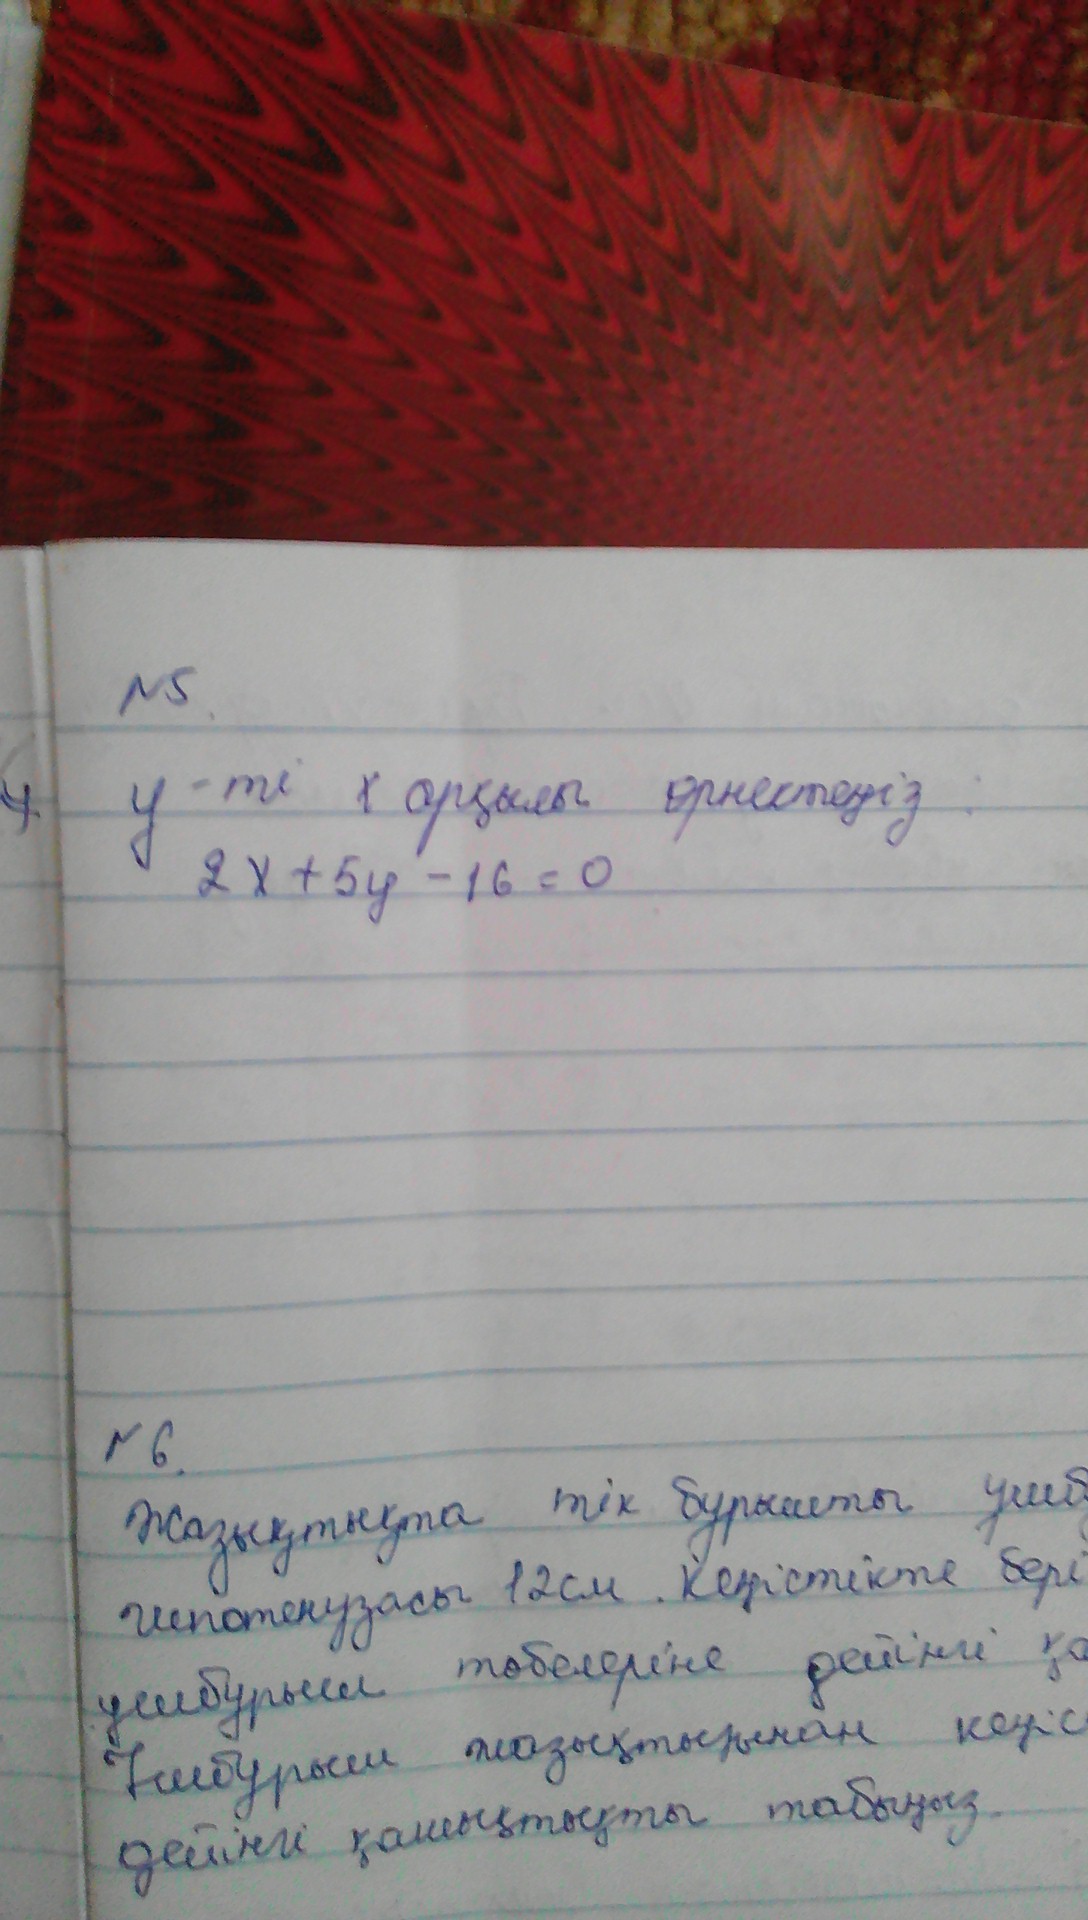 №5.
у-ті х арқылы өрнектеңіз:
2х+5у-16=0
№6.
Жазықтықта тік бұрышты үшб
гипотенузасы 12см. Кеңістікте бері
үшбұрыш төбелеріне дейінгі қа
Үшбұрыш жазықтығынан кеңіс
дейінгі қашықтықты табыңыз.